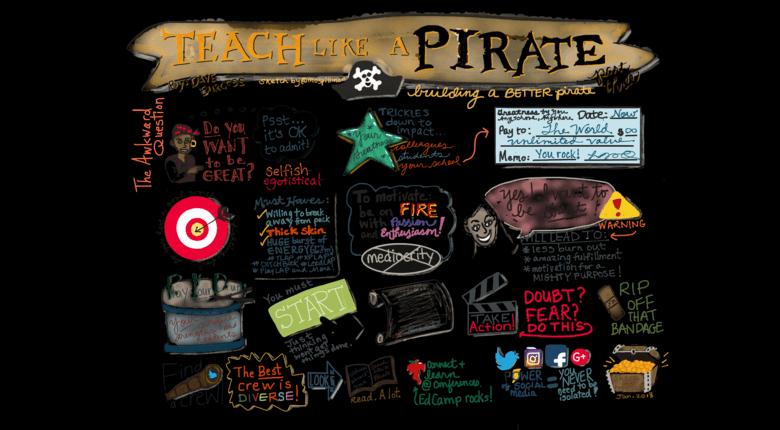 TEACH LIKE A PIRATE
BY: DAVE BURGESS
Sketch by
part three
building a BETTER pirate
The Awkward Question
DO you
WANT
to be
GREAT?
Psst...
it's OK
to admit!
Selfish
egotistical
Your
TRICKLES
down to
impact...
colleagues
students
your school
Date: Now
Pay to: The World $∞
unlimited value
Memo: You rock!
Must Haves:
Willing to break
away from pack
Thick Skin
HUGE burst of
ENERGY
# TLAP # XPLAP
# DITCHBOOK # LEADLAP
# PLAYLAP and More!
To motivate:
be on FIRE
with Passion
and Enthusiasm!
mediocrity
yes I do want to
be
!
WARNING
WILL LEAD TO:
* less burn out
* amazing fulfillment
* motivation for a
MIGHTY PURPOSE!
You must
START
Just
thinking
won't get
things done.
TAKE
Action!
DOUBT?
FEAR?
DO THIS
RIP
OFF
THAT
BANDAGE
Find
a crew!
The Best
crew is
DIVERSE!
LOOK
Read. A lot.
connect +
learn
@ conferences.
EdCamp rocks!
f
G+
POWER
OF social
media
=
you
NEVER
need to be
isolated?
Jan. 2018